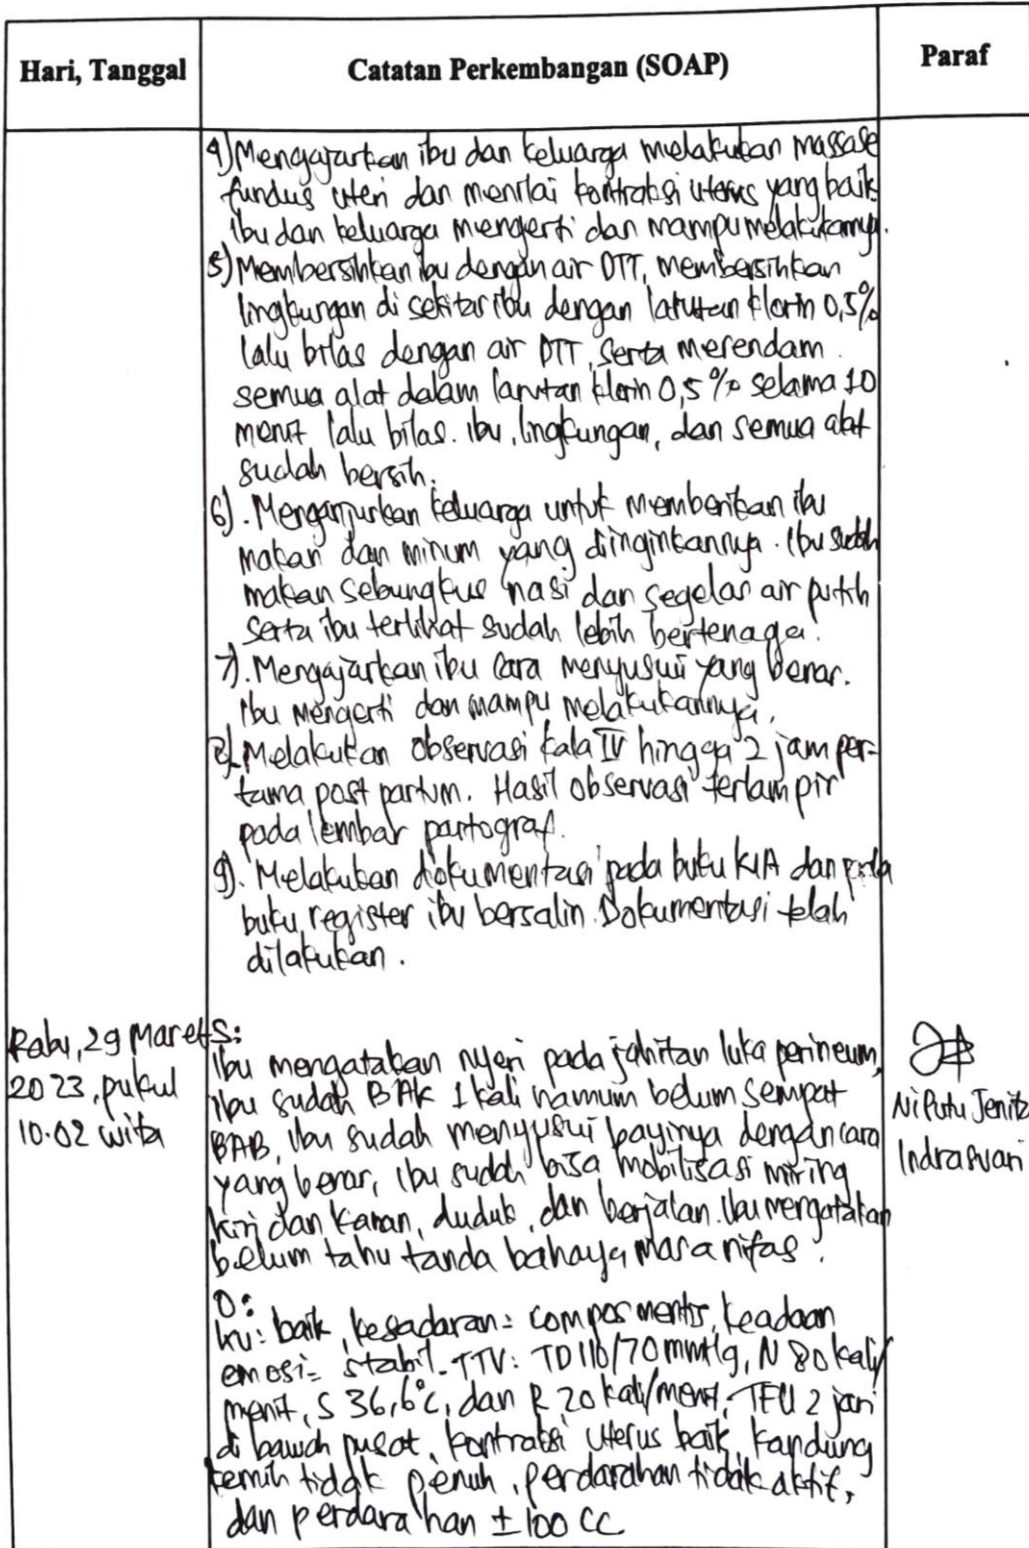 Hari, Tanggal
Catatan Perkembangan (SOAP)
Paraf
4) Mengajarkan ibu dan keluarga melakukan massase
fundus uteri dan menilai kontraksi uterus yang baik.
Ibu dan keluarga mengerti dan mampu melakukannya.
5) Membersihkan ibu dengan air DTT, membersihkan
lingkungan di sekitar ibu dengan larutan klorin 0,5%
lalu bilas dengan air DTT, serta merendam
semua alat dalam larutan klorin 0,5% selama 10
menit lalu bilas. ibu, lingkungan, dan semua alat
sudah bersih.
6). Menganjurkan keluarga untuk memberikan ibu
makan dan minum yang diinginkannya. Ibu sudah
makan sebungkus nasi dan segelas air putih
serta ibu terlihat sudah lebih bertenaga.
7). Mengajarkan ibu cara menyusui yang benar.
Ibu mengerti dan mampu melakukannya.
8). Melakukan observasi kala IV hingga 2 jam per-
tama post partum. Hasil observasi terlampir
pada lembar partograf.
9). Melakukan dokumentasi pada buku KIA dan pada
buku register ibu bersalin. Dokumentasi telah
dilakukan.
Rabu, 29 Maret
2023, pukul
10.02 wita
S:
Ibu mengatakan nyeri pada jahitan luka perineum,
ibu sudah BAK 1 kali namum belum sempat
BAB, ibu sudah menyusui bayinya dengan cara
yang benar, ibu sudah bisa mobilisasi miring
kiri dan kanan, duduk, dan berjalan. Ibu mengatakan
belum tahu tanda bahaya masa nifas.
Ni Putu Jenita
Indraswari
O:
KU: baik, kesadaran: compos mentis, keadaan
emosi: stabil. TTV: TD 110/70 mmHg, N 80 kali/
menit, S 36,6°C, dan R 20 kali/menit, TFU 2 jari
di bawah pusat, kontraksi uterus baik, kandung
kemih tidak penuh, perdarahan tidak aktif,
dan perdarahan ± 100 CC